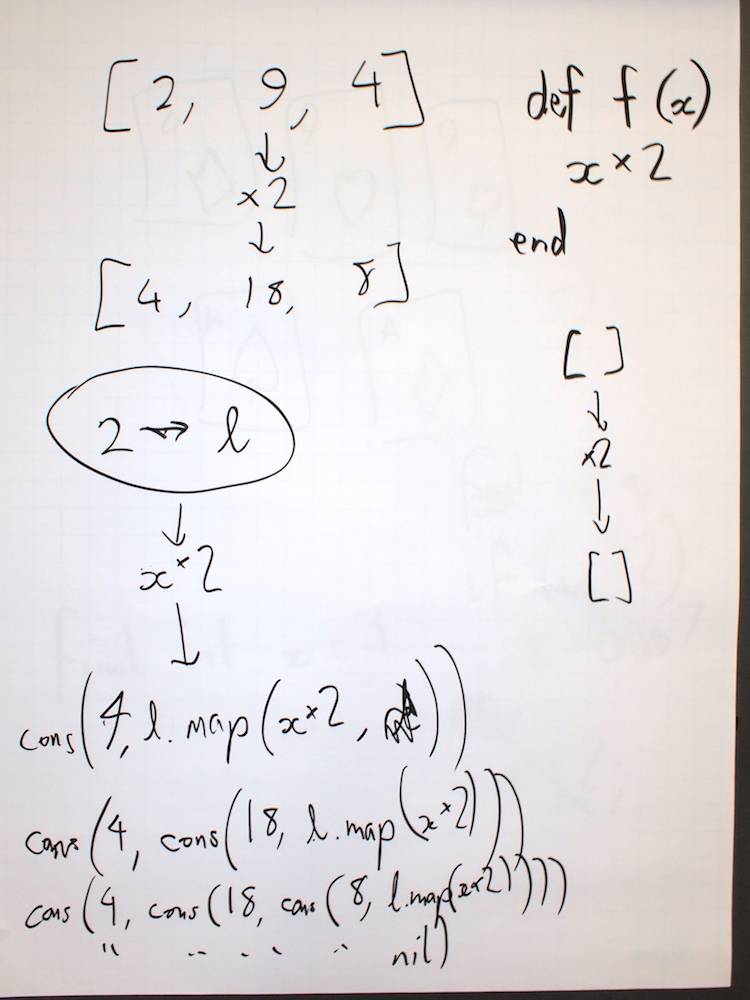 [2, 9, 4]
↓
×2
↓
[4, 18, 8]
2 → l
↓
x×2
↓
cons(4, l.map(x×2, ))
cons(4, cons(18, l.map(x×2)))
cons(4, cons(18, cons(8, l.map(x×2))))
" " " " " nil)
def f(x)
x×2
end
[]
↓
×2
↓
[]